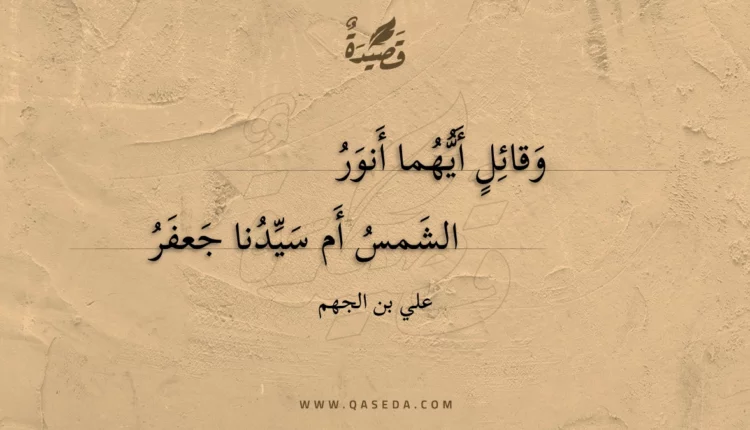 قَصِيْدَةٌ
وَقائِلٍ أَيُّهُما أَنوَرُ
الشَمسُ أَم سَيِّدُنا جَعفَرُ
علي بن الجهم
WWW.QASEDA.COM